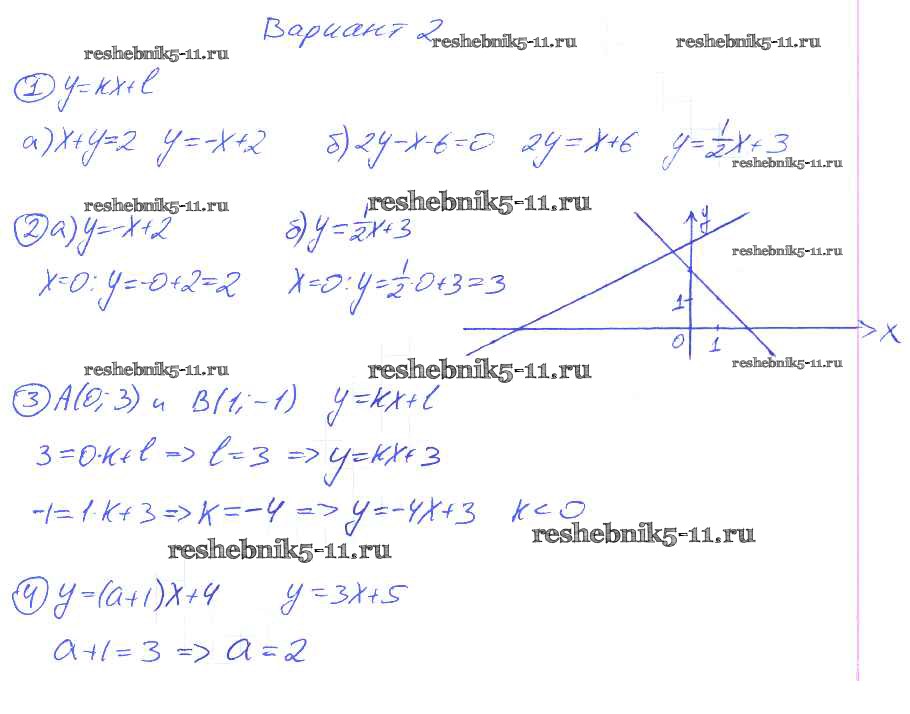 Вариант 2
reshebnik5-11.ru reshebnik5-11.ru reshebnik5-11.ru
① y=kx+l
а) x+y=2 y=-x+2 б) 2y-x-6=0 2y=x+6 y=1/2x+3
reshebnik5-11.ru
reshebnik5-11.ru reshebnik5-11.ru
② а) y=-x+2 б) y=1/2x+3
y
reshebnik5-11.ru
x=0: y=-0+2=2 x=0: y=1/2·0+3=3
1
0 1 x
reshebnik5-11.ru reshebnik5-11.ru reshebnik5-11.ru
③ A(0; 3) и B(1; -1) y=kx+l
3=0·k+l => l=3 => y=kx+3
-1=1·k+3 => k=-4 => y=-4x+3 k<0
reshebnik5-11.ru reshebnik5-11.ru
④ y=(a+1)x+4 y=3x+5
a+1=3 => a=2